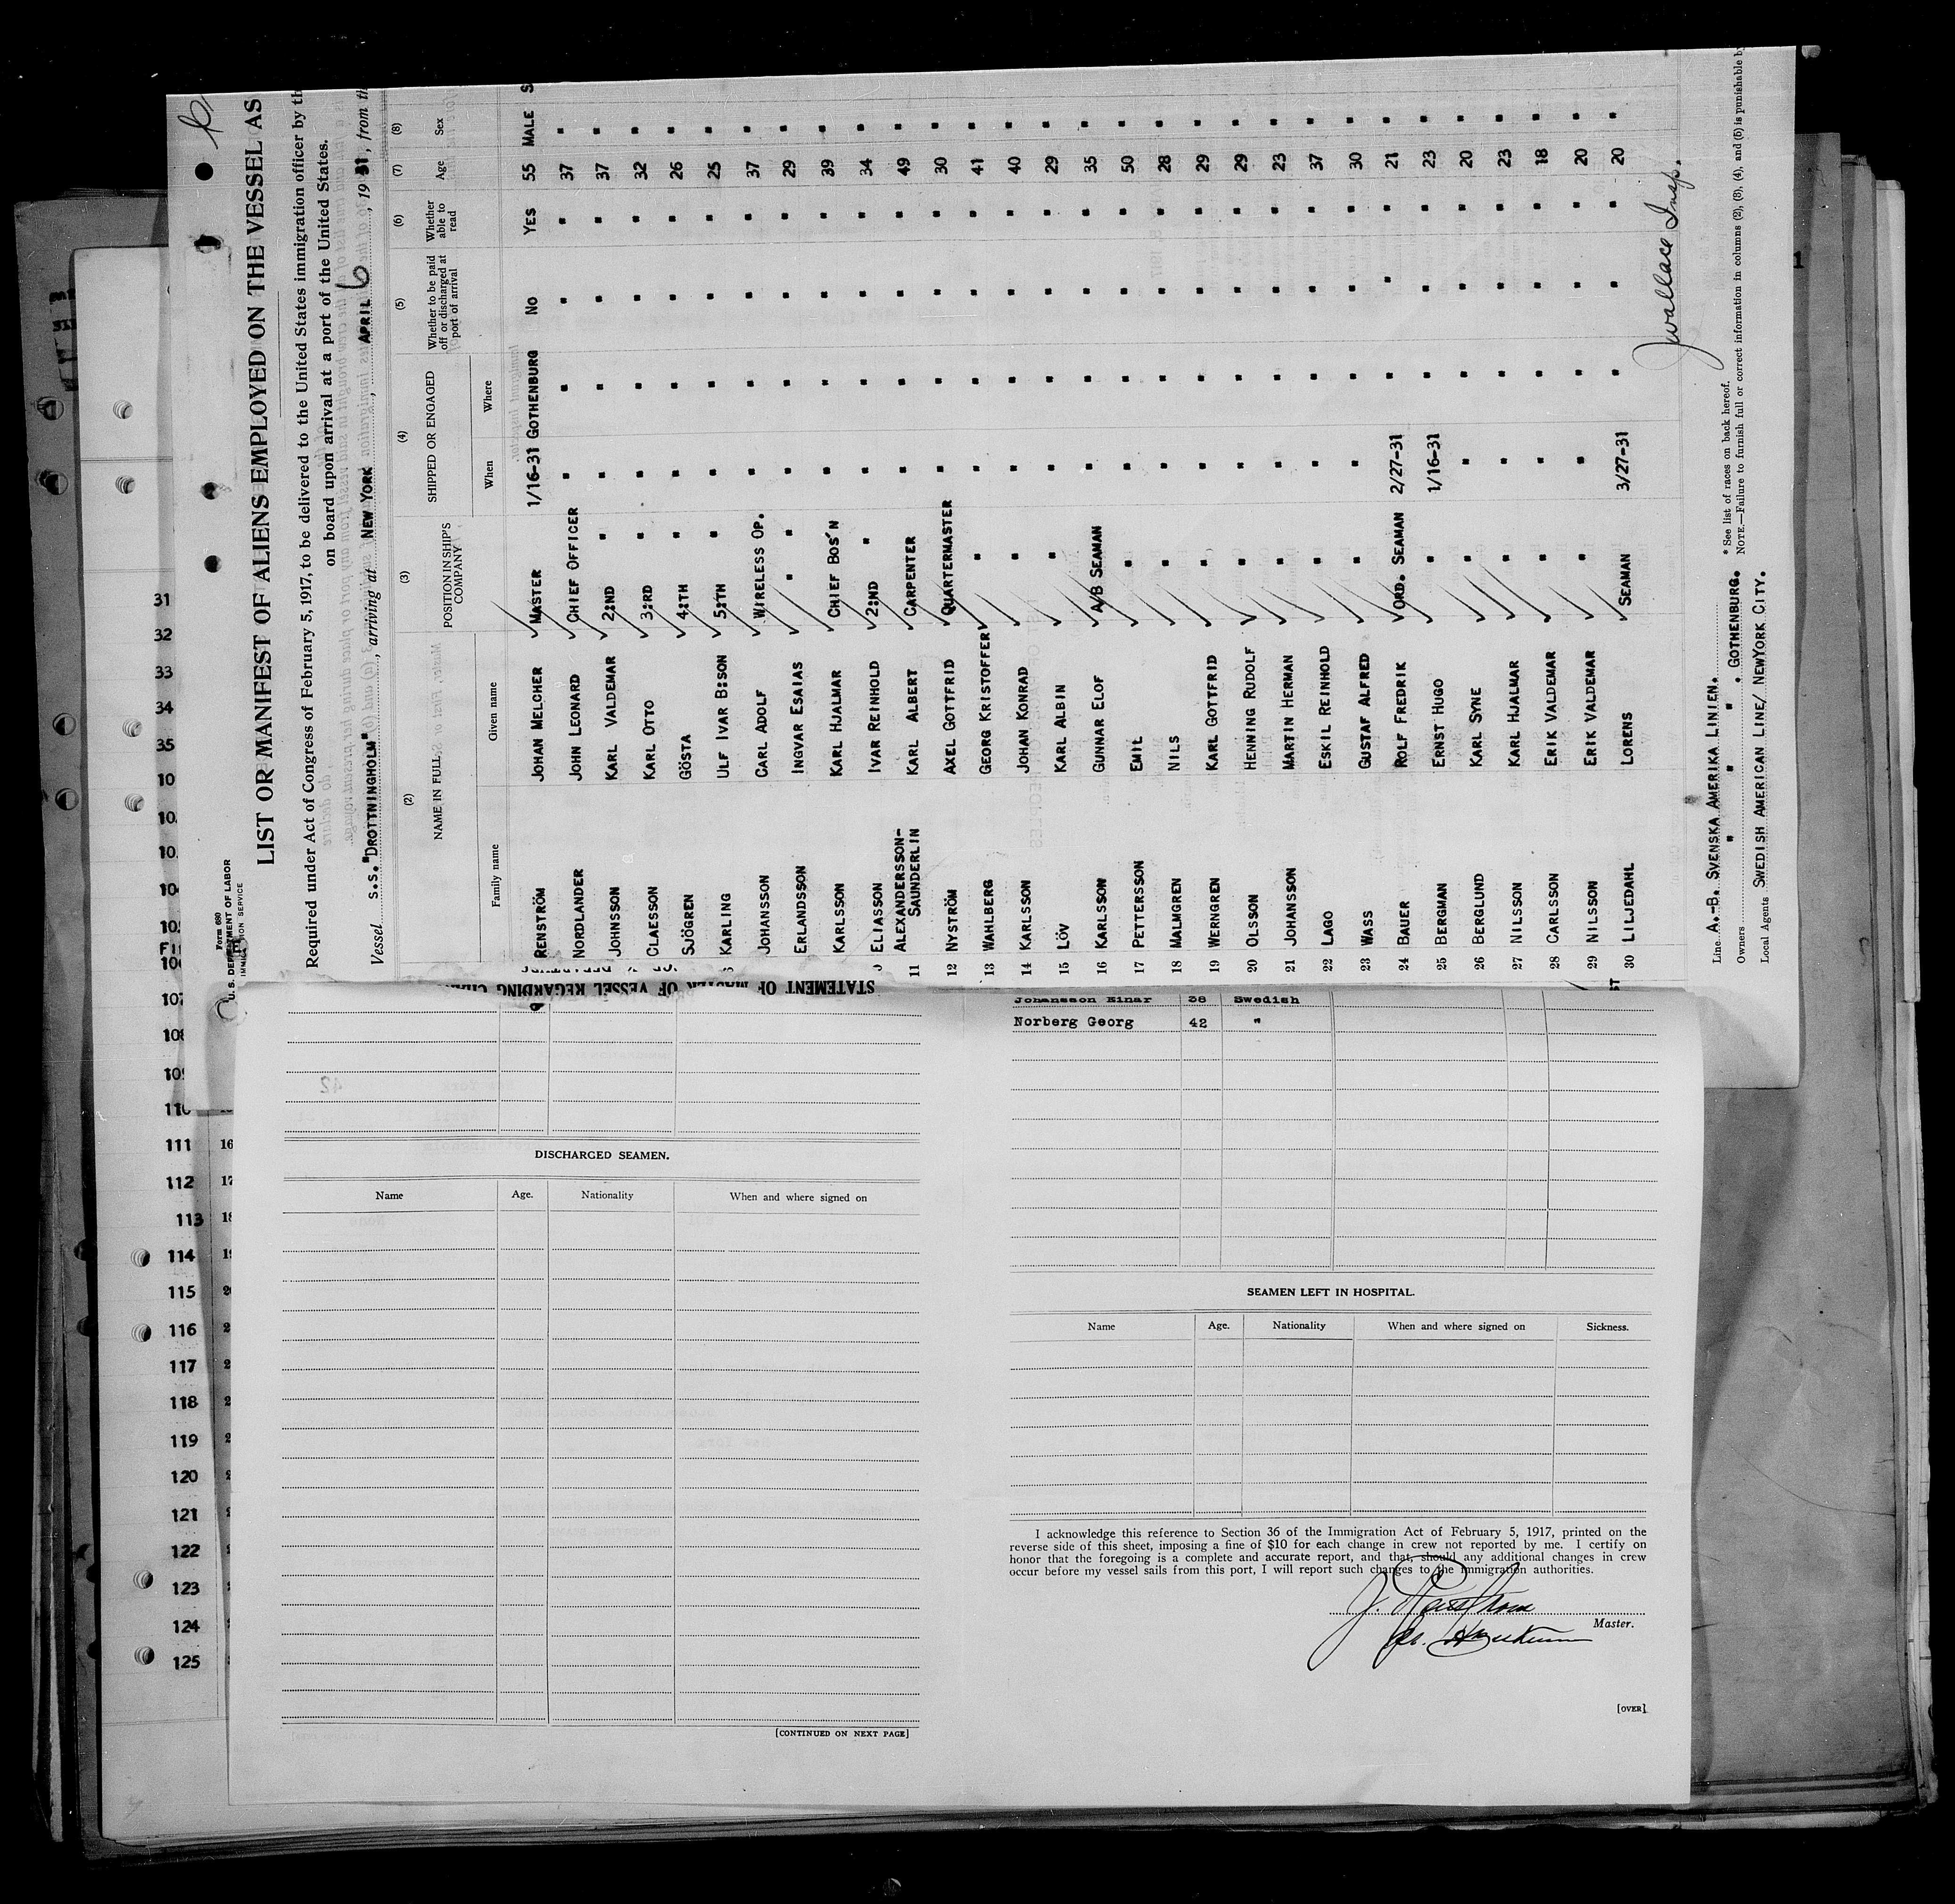 Form 680
U. S. DEPARTMENT OF LABOR
IMMIGRATION SERVICE
LIST OR MANIFEST OF ALIENS EMPLOYED ON THE VESSEL AS
Required under Act of Congress of February 5, 1917, to be delivered to the United States immigration officer by th
on board upon arrival at a port of the United States.
Vessel S.S. "DROTTNINGHOLM", arriving at NEW YORK, APRIL 6, 1931, from th
(2) (3) (4) (5) (6) (7) (8)
NAME IN FULL POSITION IN SHIP'S COMPANY SHIPPED OR ENGAGED Whether to be paid off or discharged at port of arrival Whether able to read Age Sex
Family name Given name When Where
RENSTRÖM JOHAN MELCHER MASTER 1/16-31 GOTHENBURG NO YES 55 MALE S
NORDLANDER JOHN LEONARD CHIEF OFFICER " " " " 37 "
JOHNSSON KARL VALDEMAR 2:ND " " " " " 37 "
CLAESSON KARL OTTO 3:RD " " " " " 32 "
SJÖGREN GÖSTA 4:TH " " " " " 26 "
KARLING ULF IVAR B:SON 5:TH " " " " " 25 "
JOHANSSON CARL ADOLF WIRELESS OP. " " " " 37 "
ERLANDSSON INGVAR ESAIAS " " " " " " 29 "
KARLSSON KARL HJALMAR CHIEF BOS'N " " " " 39 "
ELIASSON IVAR REINHOLD 2:ND " " " " " 34 "
11 ALEXANDERSSON-SAUNDERLIN KARL ALBERT CARPENTER " " " " 49 "
12 NYSTRÖM AXEL GOTTFRID QUARTERMASTER " " " " 30 "
13 WAHLBERG GEORG KRISTOFFER " " " " " 41 "
14 KARLSSON JOHAN KONRAD " " " " " 40 "
15 LÖV KARL ALBIN " " " " " 29 "
16 KARLSSON GUNNAR ELOF A/B SEAMAN " " " " 35 "
17 PETTERSSON EMIL " " " " " 50 "
18 MALMGREN NILS " " " " " 28 "
19 WERNGREN KARL GOTTFRID " " " " " 29 "
20 OLSSON HENNING RUDOLF " " " " " 29 "
21 JOHANSSON MARTIN HERMAN " " " " " 23 "
22 LAGO ESKIL REINHOLD " " " " " 37 "
23 WASS GUSTAF ALFRED " " " " " 30 "
24 BAUER ROLF FREDRIK ORD. SEAMAN 2/27-31 " " " 21 "
25 BERGMAN ERNST HUGO " 1/16-31 " " " 23 "
26 BERGLUND KARL SYNE " " " " " 20 "
27 NILSSON KARL HJALMAR " " " " " 23 "
28 CARLSSON ERIK VALDEMAR " " " " " 18 "
29 NILSSON ERIK VALDEMAR " " " " " 20 "
30 LILJEDAHL LORENS SEAMAN 3/27-31 " " " 20 "
Wallace Insp.
Line A.-B. SVENSKA AMERIKA LINIEN.
Owners " " " . GOTHENBURG.
Local Agents SWEDISH AMERICAN LINE/ NEWYORK CITY.
* See list of races on back hereof.
NOTE.—Failure to furnish full or correct information in columns (2), (3), (4), and (5) is punishable by
31
32
33
34
35
10
10
10
104
105
106
107
108
109
110
111 16
112 17
113 18
114
115
116
117
118
119
120
121
122
123
124
125
STATEMENT OF MASTER OF VESSEL REGARDING CHAN
Johansson Einar 38 Swedish
Norberg Georg 42 "
DISCHARGED SEAMEN.
Name Age. Nationality When and where signed on
[CONTINUED ON NEXT PAGE]
SEAMEN LEFT IN HOSPITAL.
Name Age. Nationality When and where signed on Sickness.
I acknowledge this reference to Section 36 of the Immigration Act of February 5, 1917, printed on the
reverse side of this sheet, imposing a fine of $10 for each change in crew not reported by me. I certify on
honor that the foregoing is a complete and accurate report, and that, should any additional changes in crew
occur before my vessel sails from this port, I will report such changes to the immigration authorities.
Master.
[OVER]